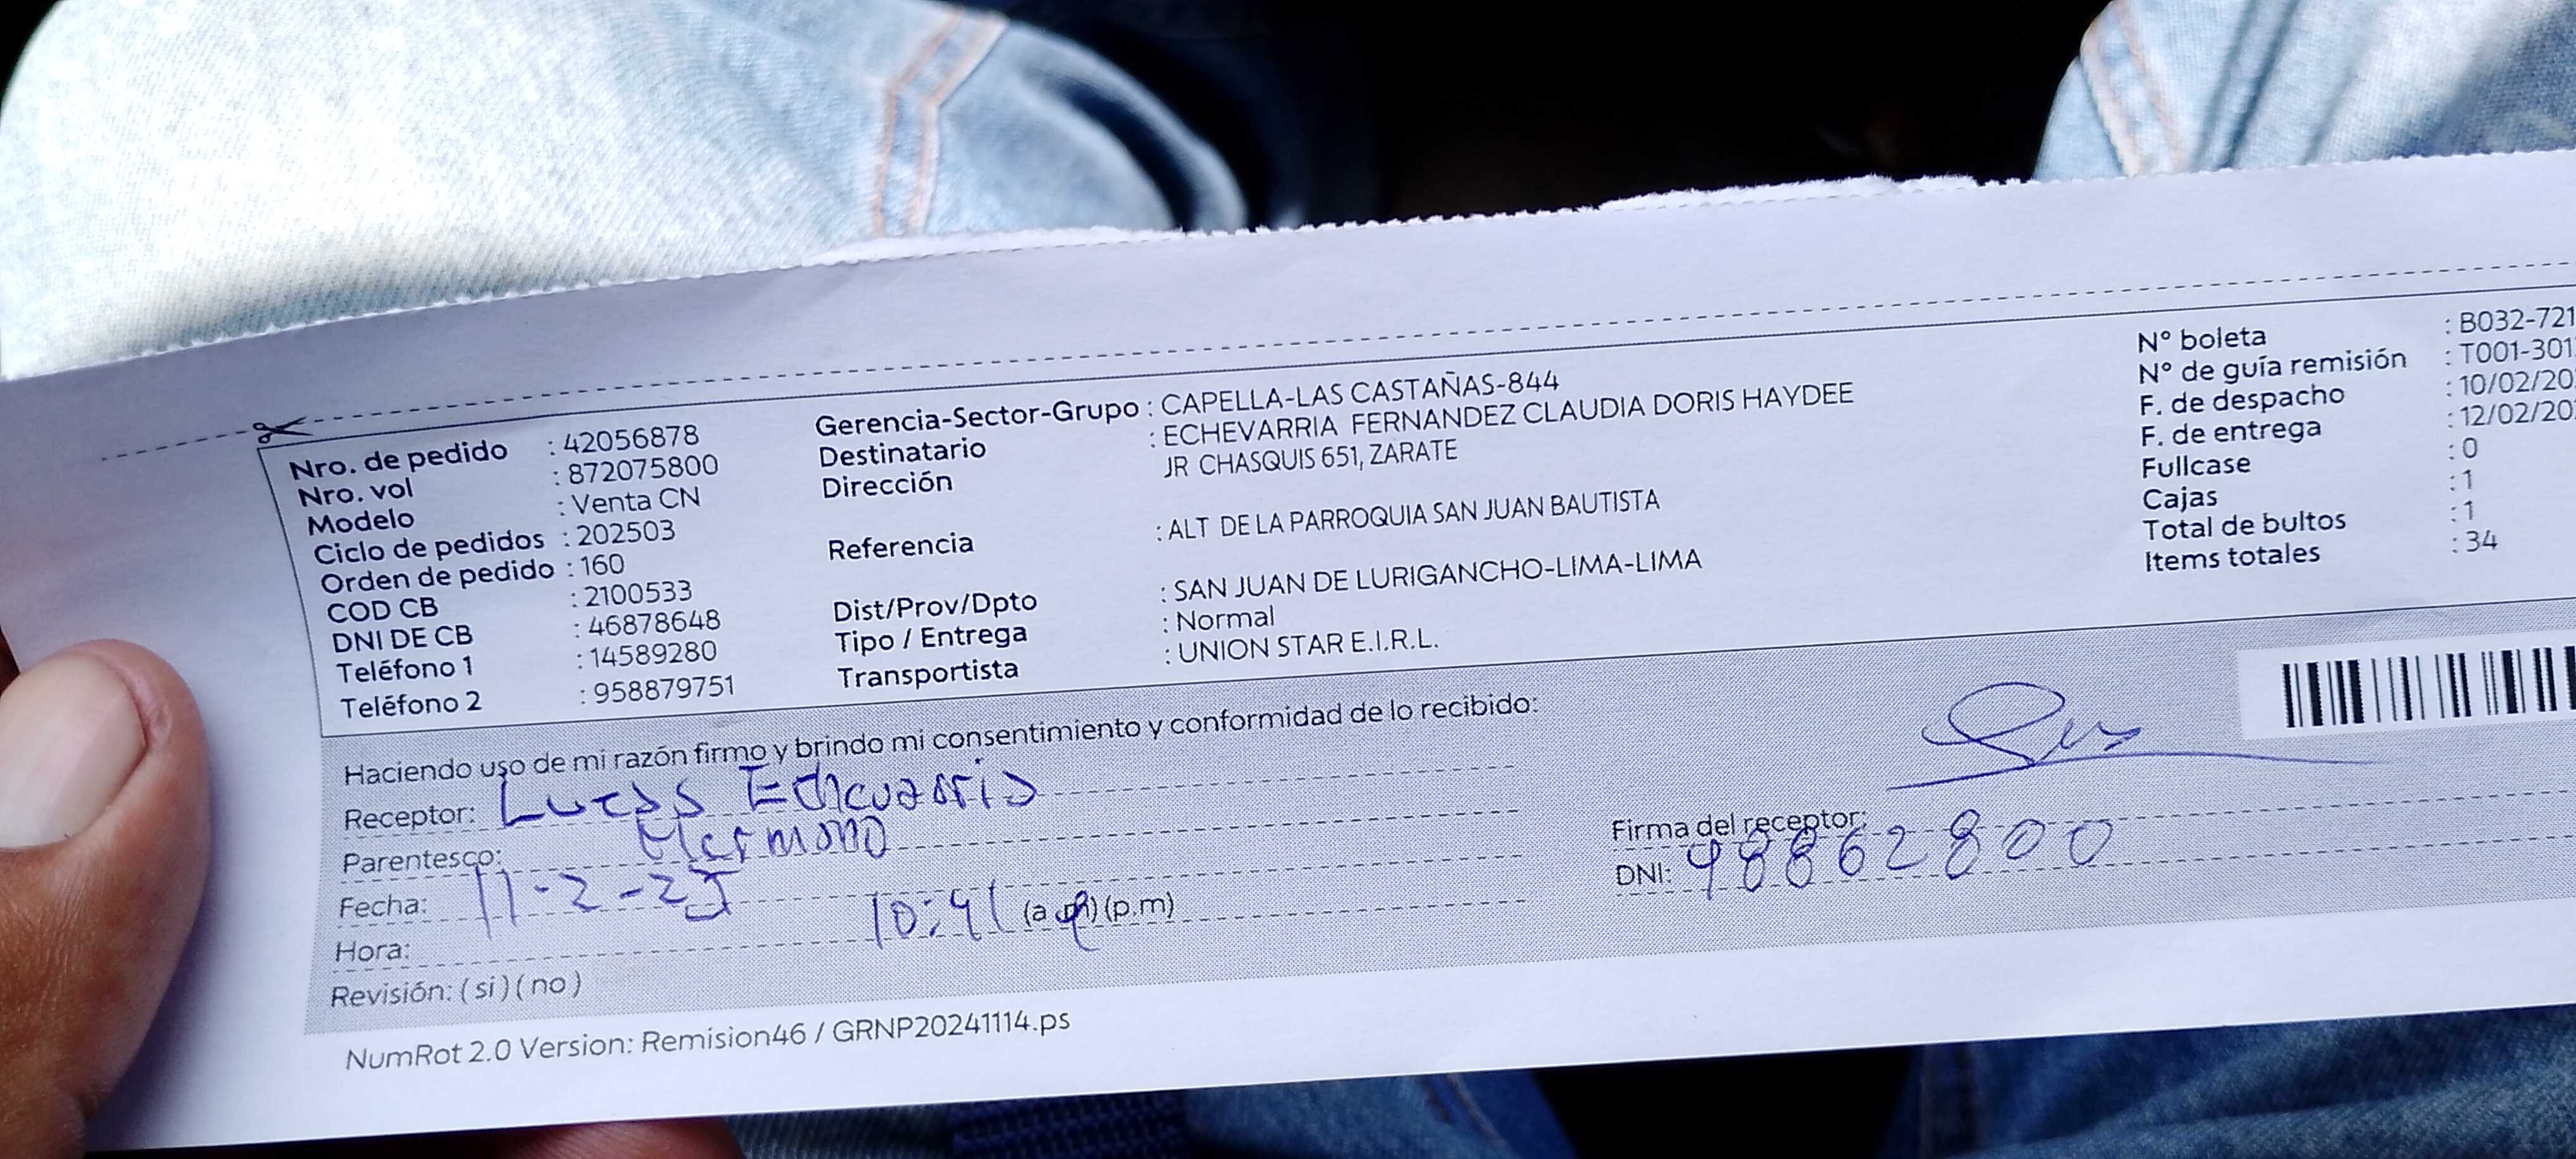 Nro. de pedido : 42056878
Nro. vol : 872075800
Modelo : Venta CN
Ciclo de pedidos : 202503
Orden de pedido : 160
COD CB : 2100533
DNI DE CB : 46878648
Teléfono 1 : 14589280
Teléfono 2 : 958879751
Gerencia-Sector-Grupo : CAPELLA-LAS CASTAÑAS-844
Destinatario : ECHEVARRIA FERNANDEZ CLAUDIA DORIS HAYDEE
Dirección JR CHASQUIS 651, ZARATE
Referencia : ALT DE LA PARROQUIA SAN JUAN BAUTISTA
Dist/Prov/Dpto : SAN JUAN DE LURIGANCHO-LIMA-LIMA
Tipo / Entrega : Normal
Transportista : UNION STAR E.I.R.L.
N° boleta : B032-721
N° de guía remisión : T001-301
F. de despacho : 10/02/20
F. de entrega : 12/02/20
Fullcase : 0
Cajas : 1
Total de bultos : 1
Items totales : 34
Haciendo uso de mi razón firmo y brindo mi consentimiento y conformidad de lo recibido:
Receptor: Lucas Echevarria
Parentesco: Hermano
Fecha: 11-2-25
Hora: 10:41 (a.m) (p.m)
Revisión: (si) (no)
Firma del receptor:
DNI: 48862800
NumRot 2.0 Version: Remision46 / GRNP20241114.ps